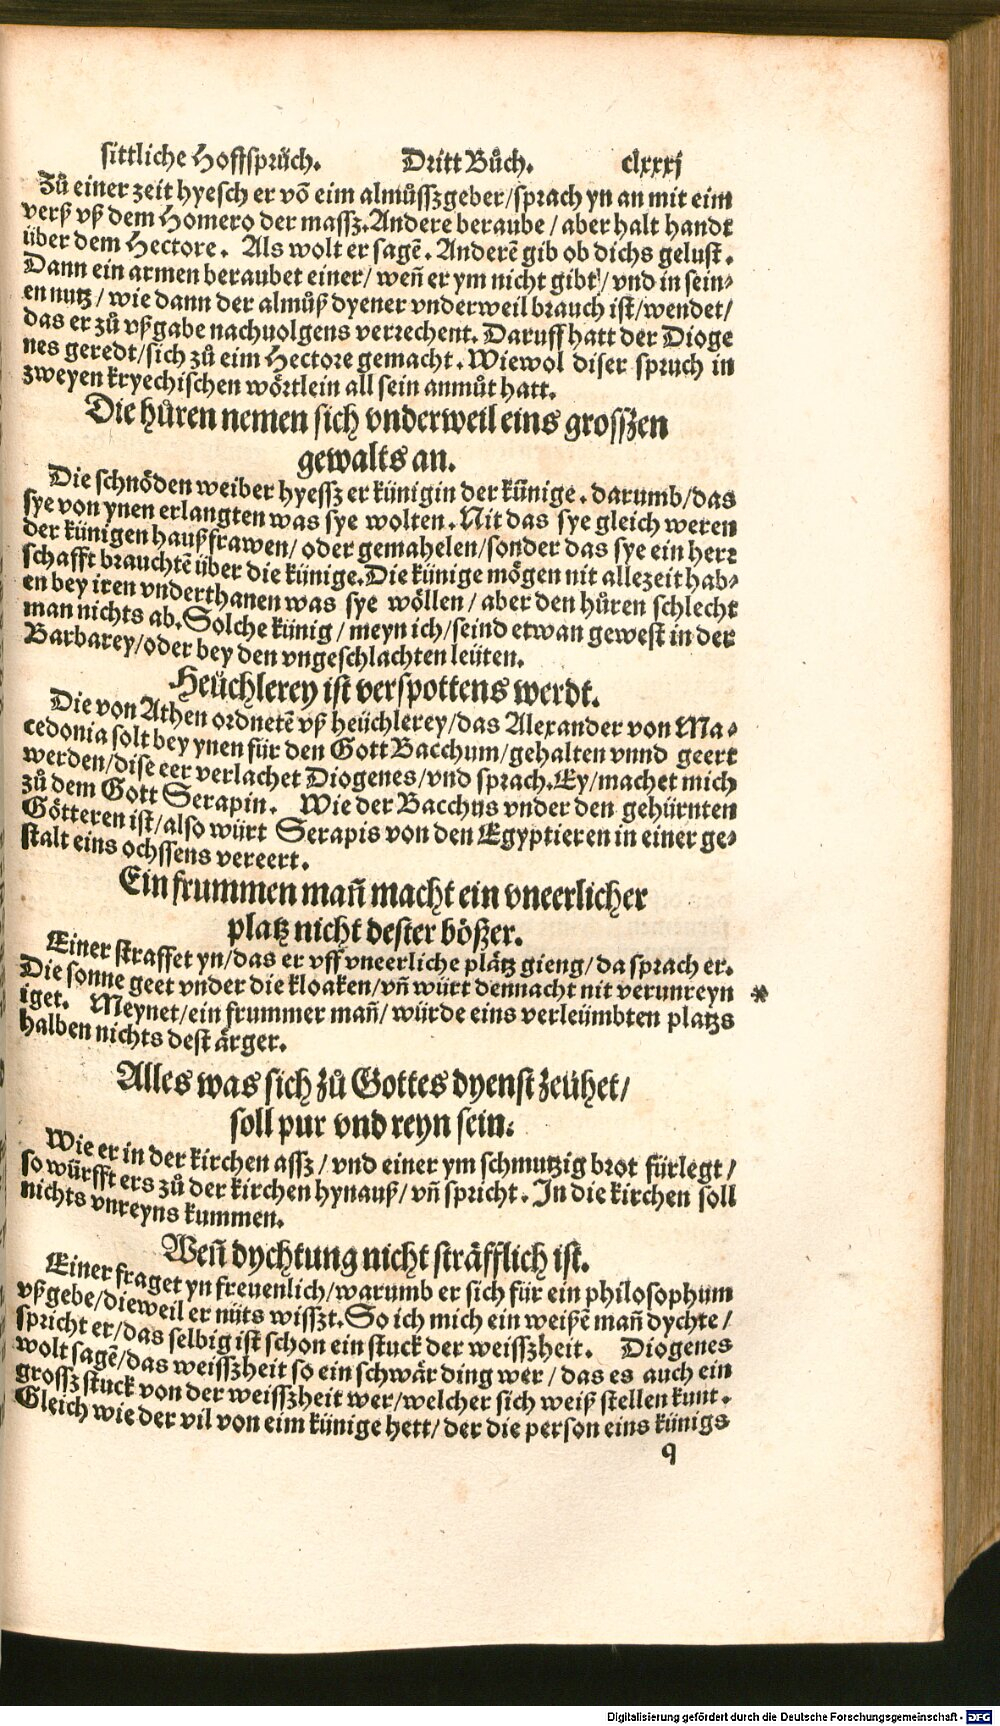 sittliche Hoffsprüch. Dritt Bůch. clxxxj
Zů einer zeit hyesch er võ eim almůsszgeber/sprach yn an mit eim
verß vß dem Homero der massz. Andere beraube / aber halt handt
über dem Hectore. Als wolt er sagẽ. Anderẽ gib ob dichs gelust.
Dann ein armen beraubet einer/ weñ er ym nicht gibt/ vnd in sein⸗
en nutz / wie dann der almůß dyener vnderweil brauch ist/wendet/
das er zů vßgabe nachuolgens verrechent. Daruff hatt der Dioge
nes geredt/sich zů eim Hectore gemacht. Wiewol diser spruch in
zweyen kryechischen wörtlein all sein anmůt hatt.
Die hůren nemen sich vnderweil eins grosszen
gewalts an.
Die schnöden weiber hyessz er künigin der künige. darumb/das
sye von ynen erlangten was sye wolten. Nit das sye gleich weren
der künigen haußfrawen/ oder gemahelen/sonder das sye ein herr
schafft brauchtẽ über die künige. Die künige mögen nit allezeit hab⸗
en bey iren vnderthanen was sye wöllen / aber den hůren schlecht
man nichts ab. Solche künig / meyn ich/seind etwan gewest in der
Barbarey/oder bey den vngeschlachten leüten.
Heüchlerey ist verspottens werdt.
Die von Athen ordnetẽ vß heüchlerey/das Alexander von Ma⸗
cedonia solt bey ynen für den Gott Bacchum/gehalten vnnd geert
werden/dise eer verlachet Diogenes/vnd sprach. Ey/machet mich
zů dem Gott Serapin. Wie der Bacchus vnder den gehürnten
Götteren ist/also würt Serapis von den Egyptieren in einer ge⸗
stalt eins ochssens vereert.
Ein frummen mañ macht ein vneerlicher
platz nicht dester bößer.
Einer straffet yn/das er vff vneerliche plätz gieng/da sprach er.
Die sonne geet vnder die kloaken/vñ würt dennacht nit verunreyn *
iget. Meynet/ein frummer mañ/ würde eins verleümbten platzs
halben nichts dest ärger.
Alles was sich zů Gottes dyenst zeühet/
soll pur vnd reyn sein.
Wie er in der kirchen assz / vnd einer ym schmutzig brot fürlegt /
so würfft ers zů der kirchen hynauß/ vñ spricht. In die kirchen soll
nichts vnreyns kummen.
Weñ dychtung nicht sträfflich ist.
Einer fraget yn freuenlich/warumb er sich für ein philosophum
vßgebe/dieweil er nüts wisszt. So ich mich ein weißẽ mañ dychte /
spricht er/das selbig ist schon ein stuck der weisszheit. Diogenes
wolt sagẽ/das weisszheit so ein schwär ding wer / das es auch ein
grossz stuck von der weisszheit wer/welcher sich weiß stellen kunt.
Gleich wie der vil von eim künige hett/ der die person eins künigs
q
Digitalisierung gefördert durch die Deutsche Forschungsgemeinschaft - DFG